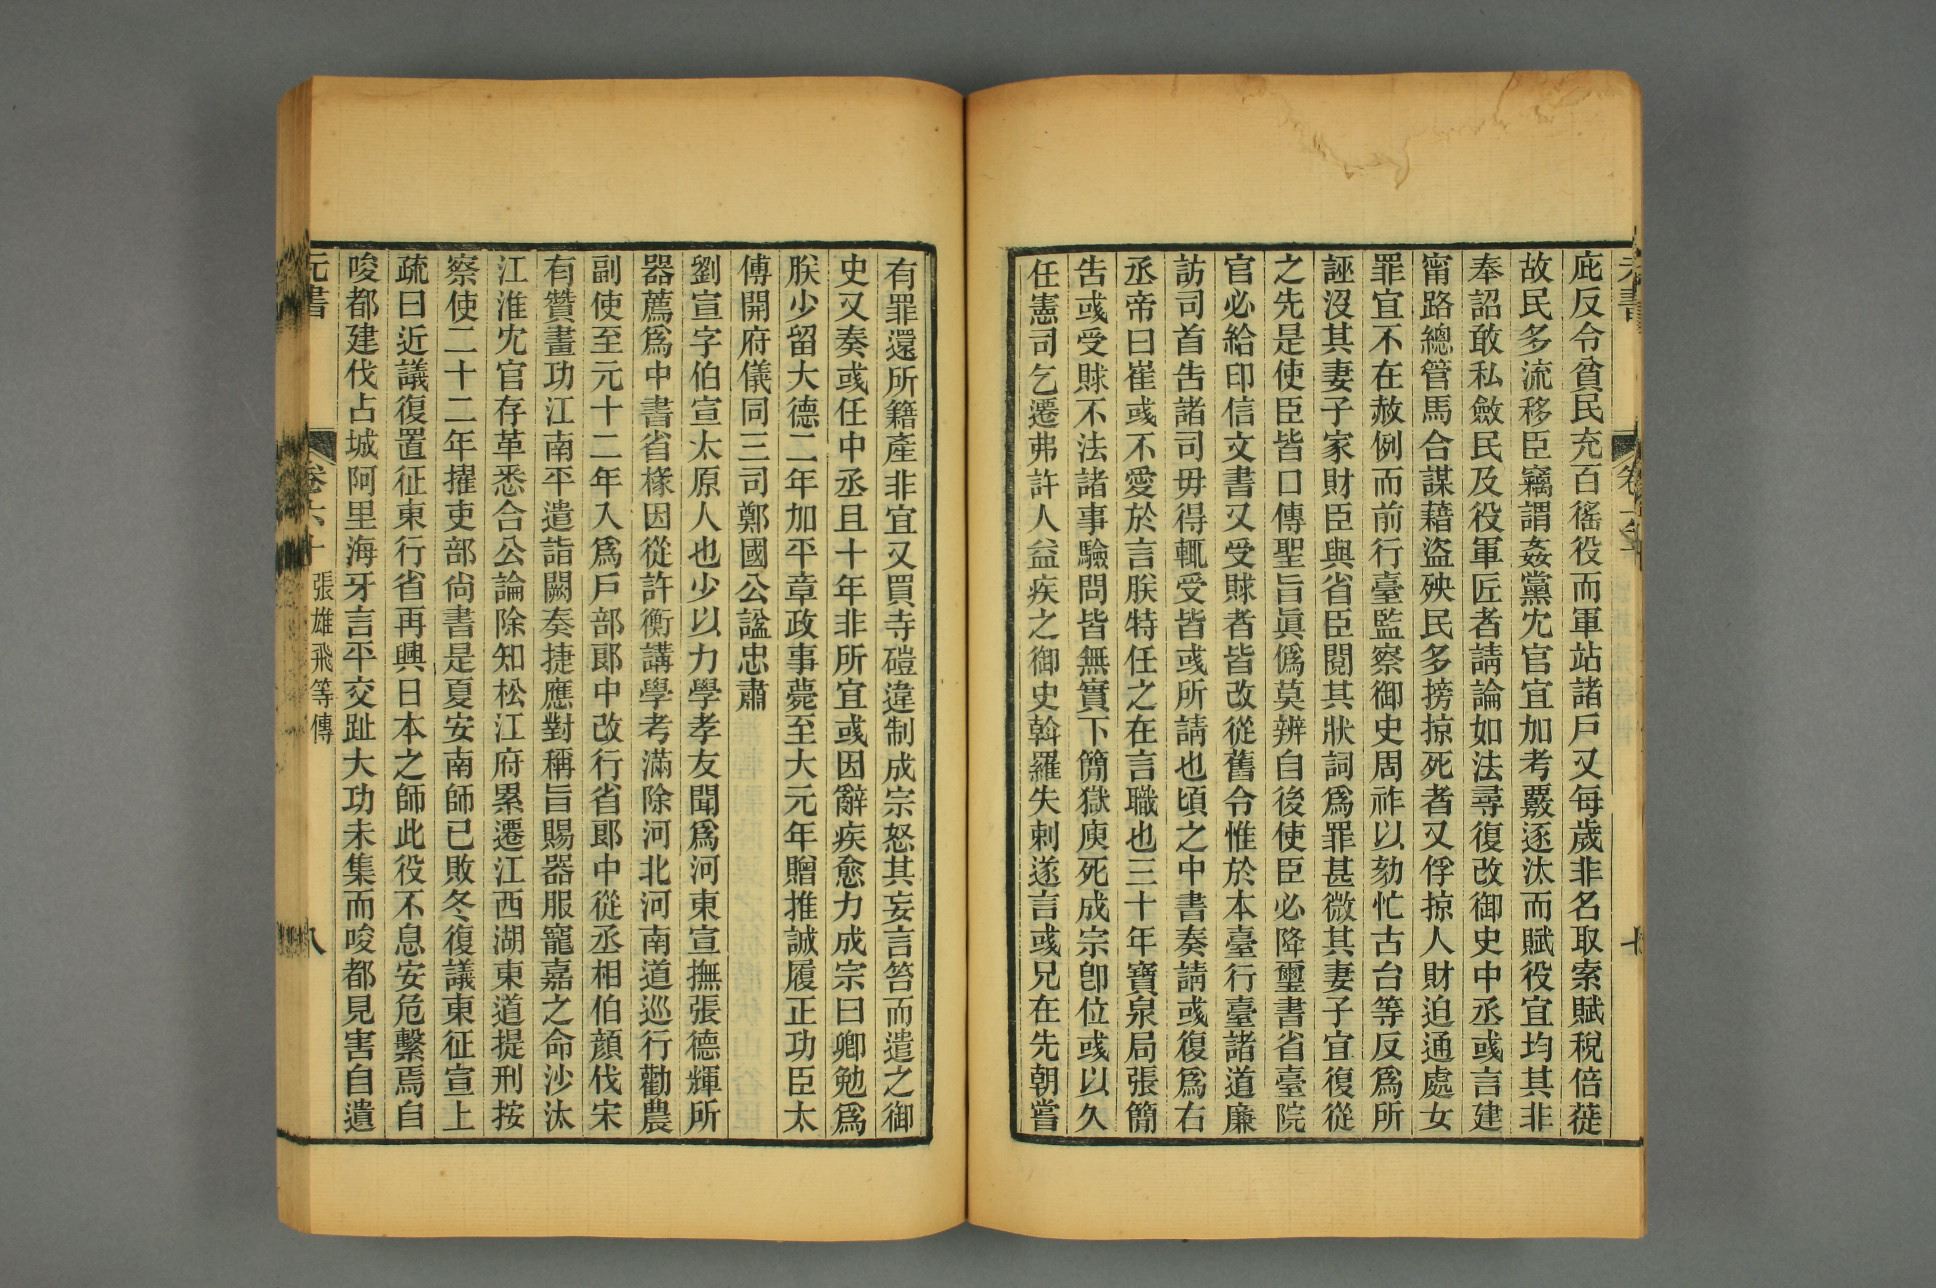 庇反令貧民充百徭役而軍站諸戶又每歲非名取索賦稅倍蓰
故民多流移臣竊謂姦黨宂官宜加考覈逐汰而賦役宜均其非
奉詔敢私斂民及役軍匠者請論如法尋復改御史中丞彧言建
甯路總管馬合謀藉盜殃民多搒掠死者又俘掠人財迫通處女
罪宜不在赦例而前行臺監察御史周祚以劾忙古台等反爲所
誣沒其妻子家財臣與省臣閱其狀詞爲罪甚微其妻子宜復從
之先是使臣皆口傳聖旨眞僞莫辨自後使臣必降璽書省臺院
官必給印信文書又受賕者皆改從舊令惟於本臺行臺諸道廉
訪司首告諸司毋得輒受皆彧所請也頃之中書奏請彧復爲右
丞帝曰崔彧不愛於言朕特任之在言職也三十年寶泉局張簡
告彧受賕不法諸事驗問皆無實下簡獄庾死成宗卽位彧以久
任憲司乞遷弗許人益疾之御史斡羅失剌遂言彧兄在先朝嘗
有罪還所籍產非宜又買寺磑違制成宗怒其妄言笞而遣之御
史又奏彧任中丞且十年非所宜彧因辭疾愈力成宗曰卿勉爲
朕少留大德二年加平章政事薨至大元年贈推誠履正功臣太
傅開府儀同三司鄭國公諡忠肅
劉宣字伯宣太原人也少以力學孝友聞爲河東宣撫張德輝所
器薦爲中書省椽因從許衡講學考滿除河北河南道巡行勸農
副使至元十二年入爲戶部郎中改行省郎中從丞相伯顏伐宋
有贊畫功江南平遣詣闕奏捷應對稱旨賜器服寵嘉之命沙汰
江淮宂官存革悉合公論除知松江府累遷江西湖東道提刑按
察使二十二年擢吏部尙書是夏安南師已敗冬復議東征宣上
疏曰近議復置征東行省再興日本之師此役不息安危繫焉自
唆都建伐占城阿里海牙言平交趾大功未集而唆都見害自遺
元書 卷六十 張雄飛等傳 八